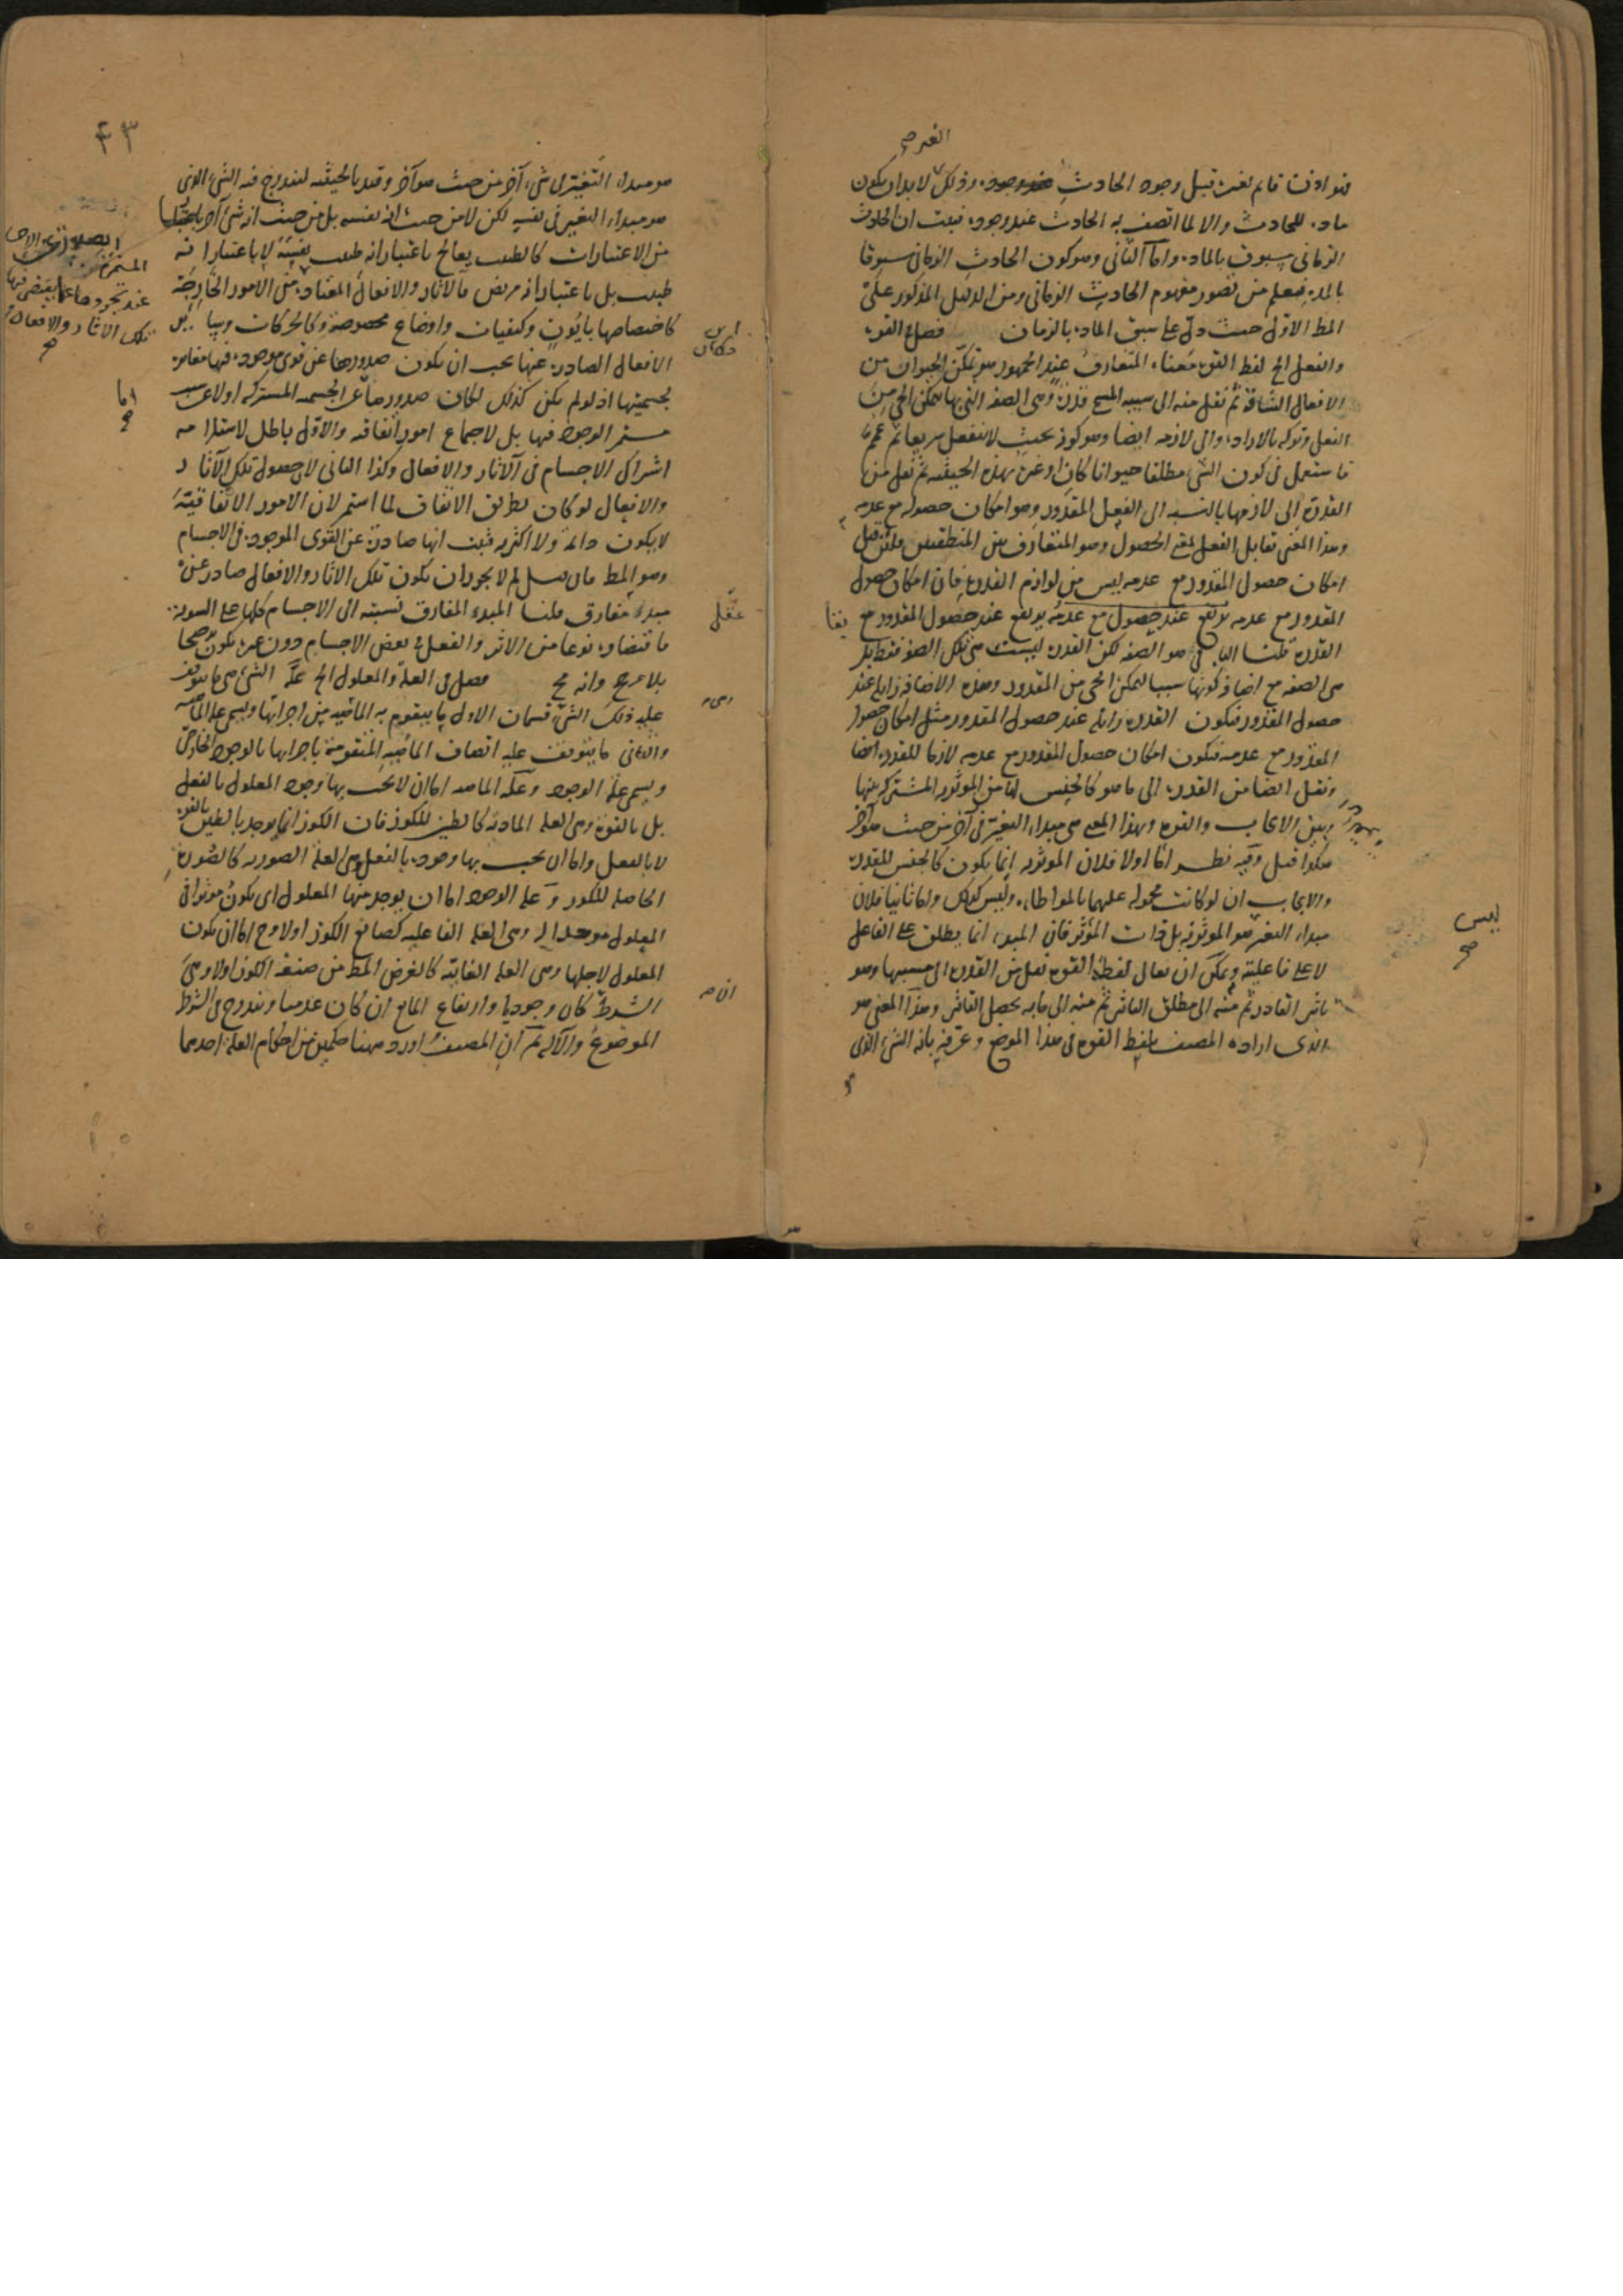 الغير صح
هو اذن قائم بغيره قبل وجود الحادث وذلك لا بد ان يكون
مادة للحادث والا لما اتصف به الحادث عند وجوده فثبت ان الحادث
الزمانى مسبوق بالمادة واما الثانى وهو كون الحادث الزمانى مسبوقا
بالمدة فيعلم من تصور مفهوم الحادث الزمانى ومن الدليل المذكور على
المط الاول حيث دل على سبق المادة بالزمان فصل فى القوة
والفعل الخ لفظ القوة معناه المتعارف عند الجمهور هو تمكن الحيوان من
الافعال الشاقة ثم نقل منه الى سببه قدرة وهى الصفة التى بها يتمكن الحى من
الفعل وتركه بالارادة والى لازمه ايضا وهو كونه بحيث لا ينفعل سريعا ثم عمم
فاستعمل فى كون الشئ مطلقا حيوانا كان او غيره بهذه الحيثية ثم نقل من
القدرة الى لازمها بالنسبة الى الفعل المقدور وهو امكان حصوله مع عدمه
وهذا المعنى تقابل الفعل بمعنى الحصول وهو المتعارف بين المنطقيين فان قيل
امكان حصول المقدور مع عدمه ليس من لوازم القدرة فان امكان حصول
المقدور مع عدمه يرتفع عند حصول المقدور مع
القدرة قلنا الباقى هو الصفة لكن القدرة ليست هى تلك الصفة فقط بل
هى الصفة مع اضافة كونها سببا لتمكن الحى من المقدور وهذه الاضافة زايلة عند
حصول المقدور فتكون القدرة زايلة عند حصول المقدور مثل امكان حصول
المقدور مع عدمه فيكون امكان حصول المقدور مع عدمه لازما للقدرة ايضا
ونقل ايضا من القدرة الى ما هو كالجنس لها من المؤثرية المشتركة بينها
وبين الايجاب والقوة بهذا المعنى هى مبداء التغير فى آخر من حيث هو آخر
هكذا قيل وفيه نظر اما اولا فلان المؤثرية انما يكون كالجنس للقدرة
والايجاب ان لو كانت محمولة عليهما بالمواطاة وليس كذلك واما ثانيا فلان
مبداء التغير هو المؤثرية بل ذات المؤثر فان المبداء انما يطلق على الفاعل
لا على فاعليته ويمكن ان يقال لفظ القوة نقل من القدرة الى جنسها وهو
تاثير القادر ثم منه الى مطلق التاثير ثم منه الى ما به يحصل التاثير وهذا المعنى هو
الذى اراده المصنف بلفظ القوة فى هذا الموضع وعرفه بانه الشئ الذى
بقا
ليس
صح
٤٣
هو مبداء التغير فى شئ آخر من حيث هو آخر وقيد بالحيثية ليندرج فيه الشئ الذى
هو مبداء التغير فى نفسه لكن لا من حيث انه نفسه بل من حيث انه شئ آخر باعتبار
من الاعتبارات كالطبيب يعالج باعتبار انه طبيب نفسه لا باعتبار انه
طبيب بل باعتبار انه مريض فالاثار والافعال المعتادة مثل الامور الخارجة
كاختصاصها باَيُون وكيفيات واوضاع مخصوصة وكالحركات
الافعال الصادرة عنها يجب ان يكون صدورها عن قوى موجودة فيها مغايرة
لجسميتها اذ لو لم يكن كذلك لكان صدورها عن الجسمية المشتركة او لا عن سبب
مستمر الوجود فيها بل لاجتماع امور اتفاقية والاول باطل لاستلزامه
اشتراك الاجسام فى الآثار والافعال وكذا الثانى لان حصول تلك الآثار
والافعال لو كان بطريق الاتفاق لما استمر لان الامور الاتفاقية
لا يكون دائمة ولا اكثرية فثبت انها صادرة عن القوى الموجودة فى الاجسام
وهو المط فان قيل لم لا يجوز ان يكون تلك الاثار والافعال صادرة عن
مبداء مفارق قلنا المبدء المفارق نسبته الى الاجسام كلها على السوية
فاقتضاوه نوعا من الاثر والفعل فى بعض الاجسام دون غيره يكون ترجيحا
بلا مرجح وانه مح فصل فى العلة والمعلول الخ علة الشئ هى ما يتوقف
عليه ذلك الشئ قسمان الاول ما يتقوم به الماهية من اجزائها ويسمى علة الماهية
والثانى ما يتوقف عليه اتصاف الماهية المتقومة باجزائها بالوجود الخارجى
ويسمى علة الوجود وعلة الماهية اما ان لا يجب بها وجود المعلول بالفعل
بل بالقوة وهى العلة المادية كالطين للكوز فان الكوز انما يوجد بالطين بالقوة
لا بالفعل واما ان يجب بها وجوده بالفعل وهى العلة الصورية كالصورة
الحاصلة للكوز وعلة الوجود اما ان يوجد منها المعلول اى يكون مؤثرا فى
المعلول موجدا له وهى العلة الفاعلية كصانع الكوز اولا وح اما ان يكون
المعلول لاجلها وهى العلة الغائية كالغرض المط من صنعة الكوز اولا وهى
الشرط كان وجوديا وارتفاع المانع ان كان عدميا ويندرج فى الشرط
الموضوع والآلة ثم ان المصنف اورد ههنا حكمين من احكام العلة احدهما
عند تجردها عما يقتضى فيها
تلك الاثار والافعال
صح
اما